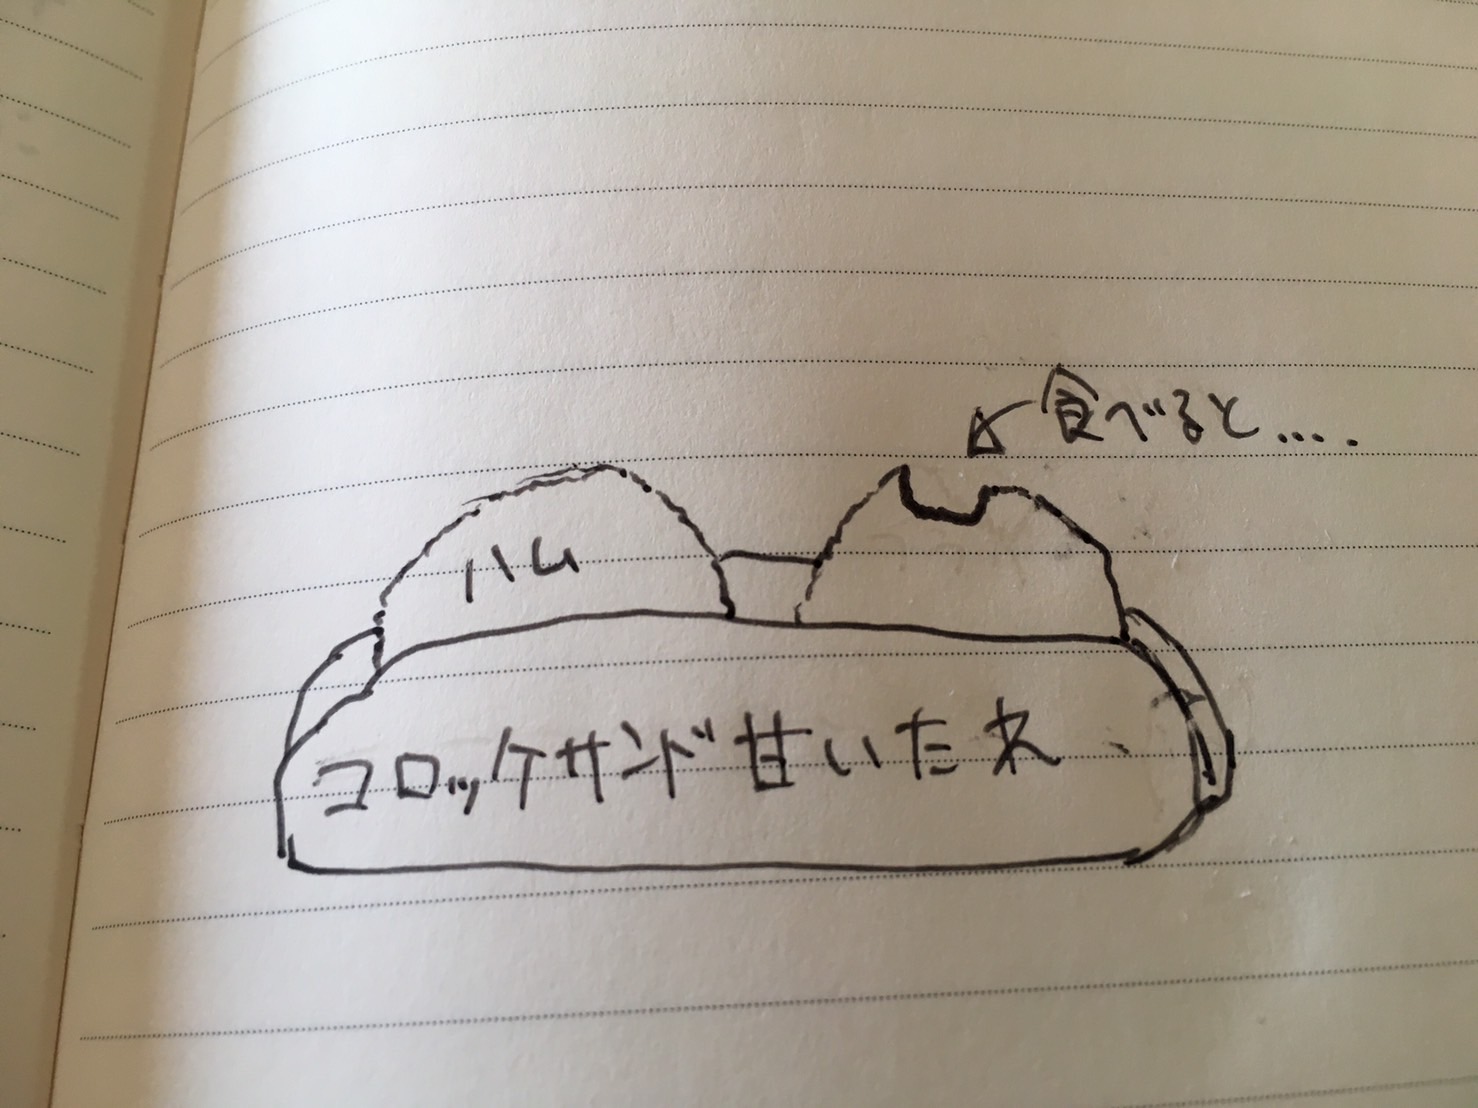 食べると....
ハム
コロッケサンド甘いたれ